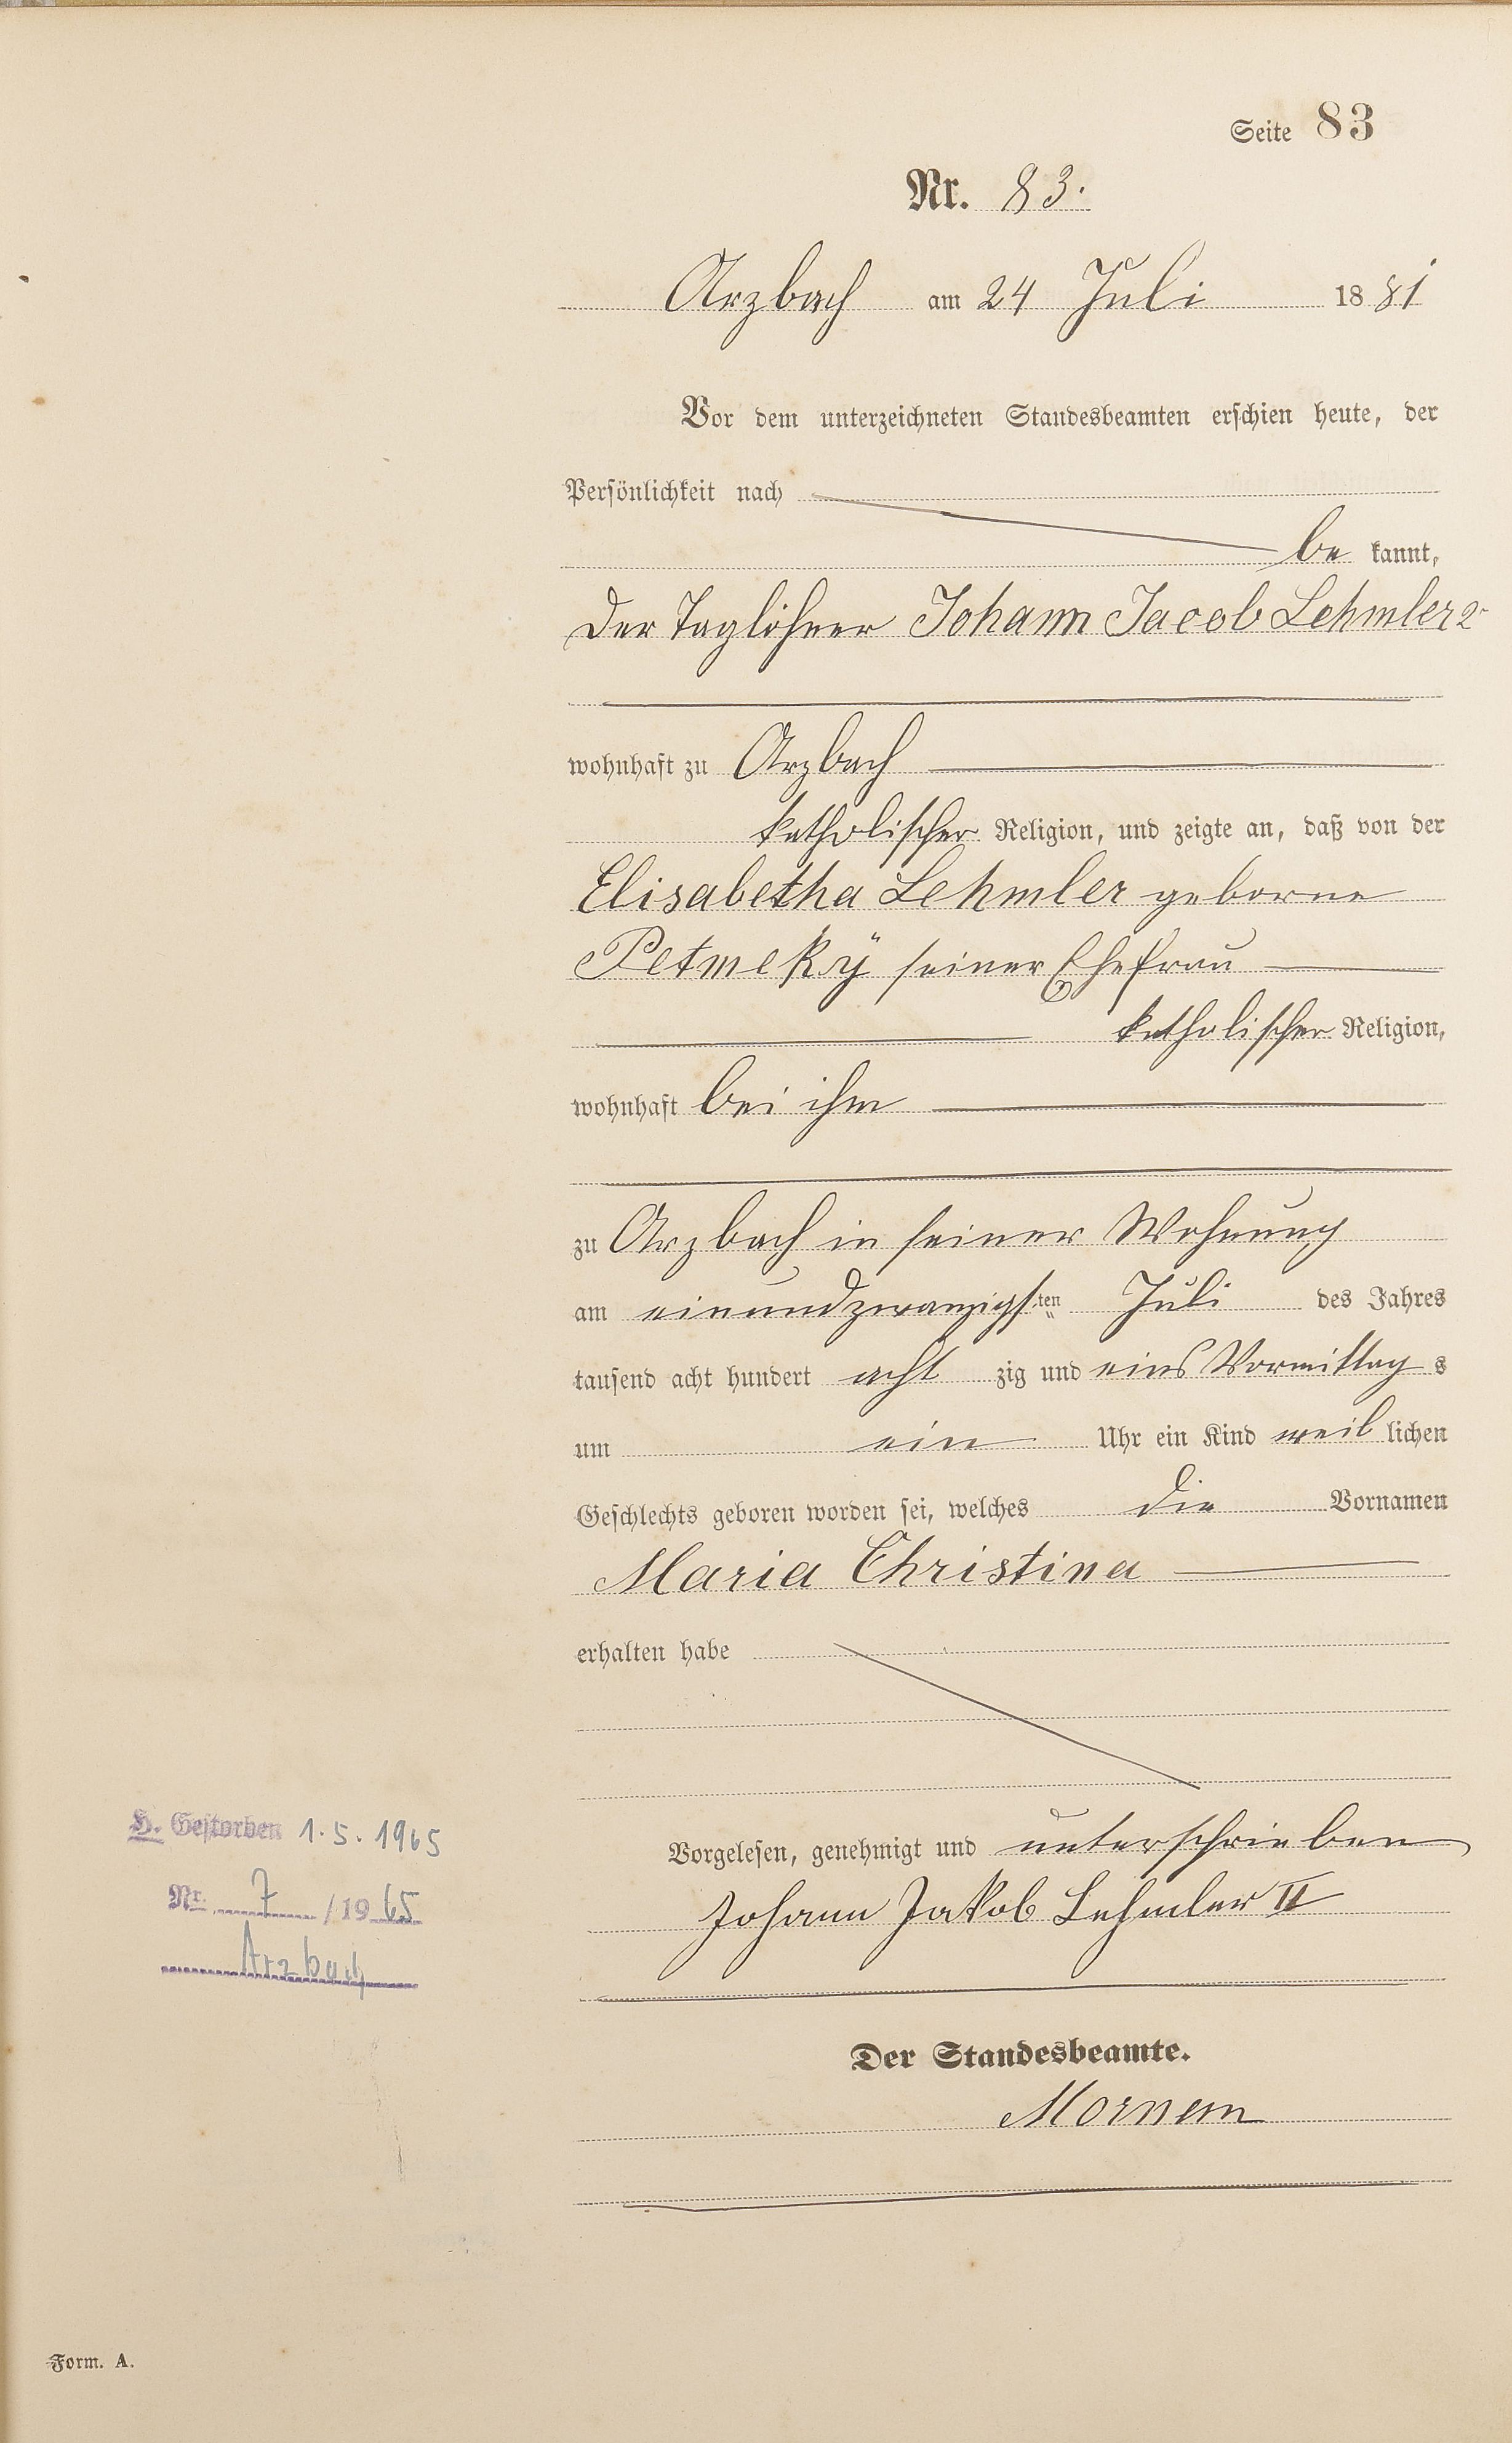 Seite 83
Nr. 83.
Arzbach am 24 Juli 1881
Vor dem unterzeichneten Standesbeamten erschien heute, der
Persönlichkeit nach
be kannt,
der Taglöhner Johann Jacob Lehmler 2r
wohnhaft zu Arzbach
katholischer Religion, und zeigte an, daß von der
Elisabetha Lehmler geborne
Petmeky seiner Ehefrau
katholischer Religion,
wohnhaft bei ihm
zu Arzbach in seiner Wohnung
am einundzwanzigsten Juli des Jahres
tausend acht hundert acht zig und eins Vormittag s
um ein Uhr ein Kind weib lichen
Geschlechts geboren worden sei, welches die Vornamen
Maria Christina
erhalten habe
Vorgelesen, genehmigt und unterschrieben
Johann Jakob Lehmler II
Der Standesbeamte.
H. Gestorben 1.5.1965
Nr. 7 / 1965
Arzbach
Form. A.